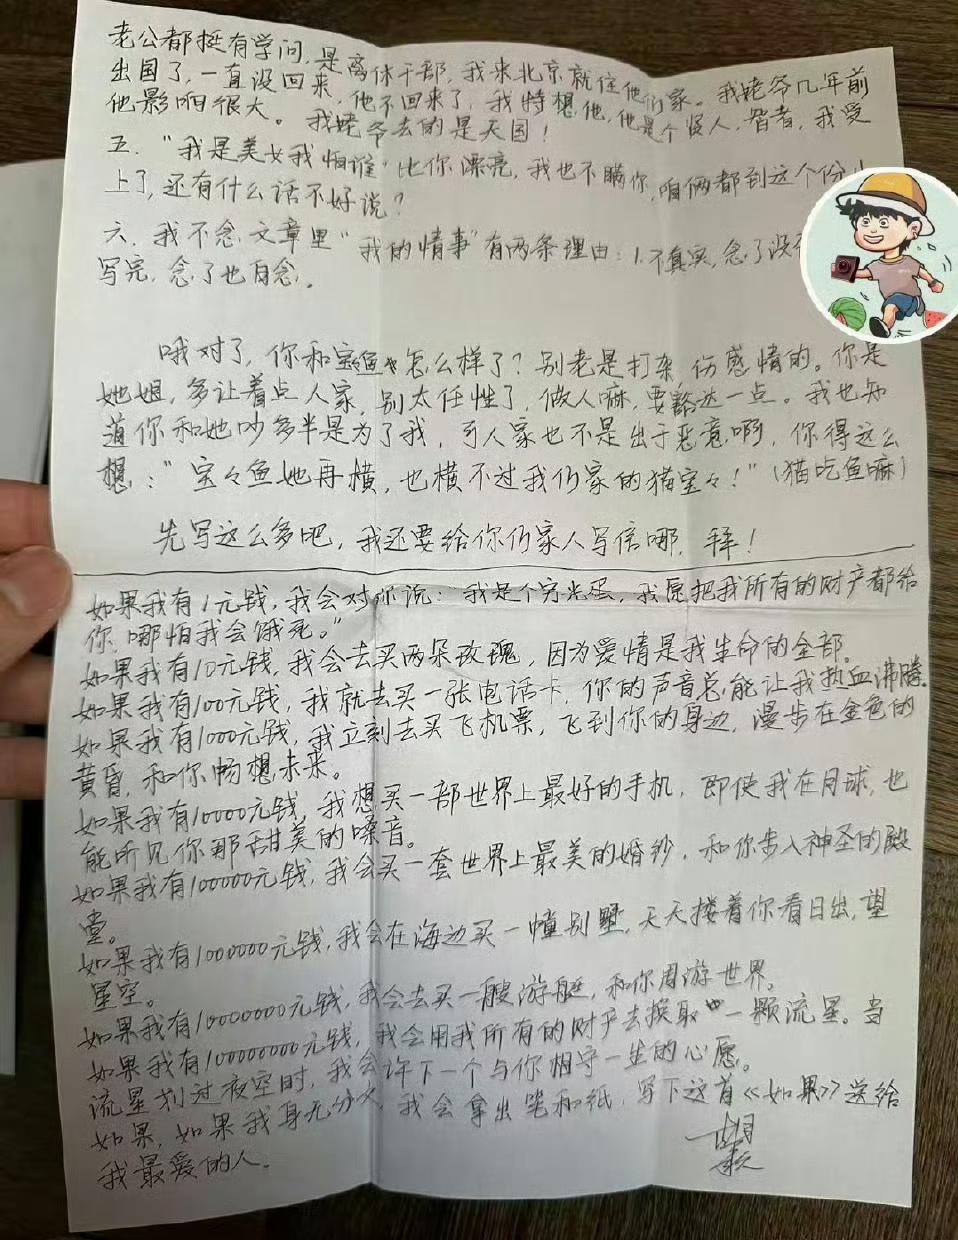 老公都挺有学问,是离休干部,我来北京就住他们家。我姥爷几年前
出国了,一直没回来,他不回来了,我特想他,他是个好人,智者,我受
他影响很大。我姥爷去的是天国!
五. "我是美女我怕谁"比你漂亮,我也不瞒你,咱俩都到这个份儿
上了,还有什么话不好说?
六. 我不念文章里"我的情事"有两条理由:1.不真实,念了没
写完,念了也白念。
哦对了,你和宝鱼怎么样了?别老是打架,伤感情的。你是
她姐,多让着点人家,别太任性了,做人嘛,要豁达一点。我也知
道你和她吵多半是为了我,可人家也不是出于恶意啊,你得这么
想:"宝々鱼她再横,也横不过我们家的猫宝々!"(猫吃鱼嘛)
先写这么多吧,我还要给你们家人写信哪,拜!
如果我有1元钱,我会对你说:我是个穷光蛋,我愿把我所有的财产都给
你,哪怕我会饿死。"
如果我有10元钱,我会去买两朵玫瑰,因为爱情是我生命的全部。
如果我有100元钱,我就去买一张电话卡,你的声音总能让我热血沸腾。
如果我有1000元钱,我立刻去买飞机票,飞到你的身边,漫步在金色的
黄昏,和你畅想未来。
如果我有10000元钱,我想买一部世界上最好的手机,即使我在月球,也
能听见你那甜美的嗓音。
如果我有100000元钱,我会买一套世界上最美的婚纱,和你步入神圣的殿
堂。
如果我有1000000元钱,我会在海边买一幢别墅,天天搂着你看日出,望
星空。
如果我有10000000元钱,我会去买一艘游艇,和你周游世界。
如果我有100000000元钱,我会用我所有的财产去换取一颗流星。当
流星划过夜空时,我会许下一个与你相守一生的心愿。
如果,如果我身无分文,我会拿出笔和纸,写下这首《如果》送给
我最爱的人。